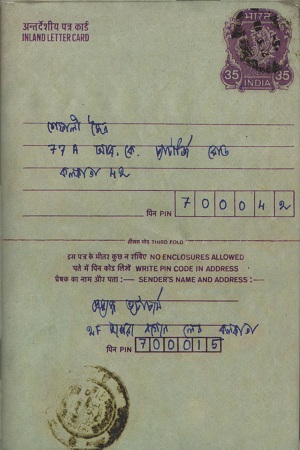 अन्तर्देशीय पत्र कार्ड
INLAND LETTER CARD
भारत
35 35
INDIA
77A আর. কে. চ্যাটার্জি রোড
কলকাতা 42
पिन PIN 700042
तीसरा मोड़ THIRD FOLD
इस पत्र के भीतर कुछ न रखिए NO ENCLOSURES ALLOWED
पते में पिन कोड लिखें WRITE PIN CODE IN ADDRESS
प्रेषक का नाम और पता :— SENDER'S NAME AND ADDRESS :—
ভট্টাচার্য
লেন কলকাতা
पिन PIN 700015